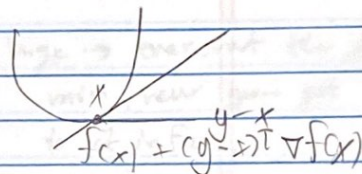 x
y-x
f(x) + (y-x)ᵀ ∇f(x)